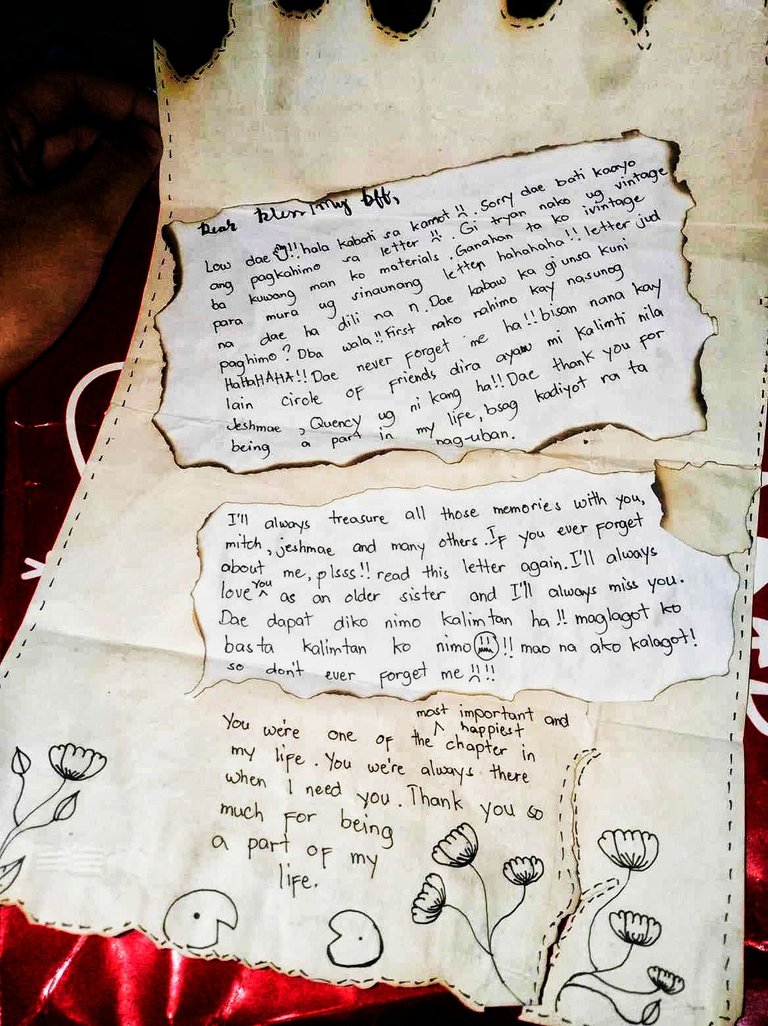 Dear klen, my bff,
Low dae !! hala kabati sa kamot !! . Sorry dae bati kaayo
ang pagkahimo sa letter !! . Gi tryan nako ug vintage
ba kuwang man ko materials. Ganahan ta ko ivintage
para mura ug sinaunang letter hahahaha!! letter jud
na dae ha dili na n. Dae kabaw ka giunsa kuni
paghimo? Dba wala!! First nako nahimo kay nasunog
HaHaHAHA!! Dae never forget me ha!! bisan nana kay
lain circle of friends dira ayaw mi kalimti nila
Jeshmae, Quency ug ni kang ha!! Dae thank you for
being a part in my life, bsag kadiyot ra ta
nag-uban.
I'll always treasure all those memories with you,
mitch, jeshmae and many others. If you ever forget
about me, plsss!! read this letter again. I'll always
love you as an older sister and I'll always miss you.
Dae dapat diko nimo kalimtan ha !! maglagot ko
basta kalimtan ko nimo !! mao na ako kalagot!
so don't ever forget me !! !!
You we're one of the most important and happiest chapter in
my life. You we're always there
when I need you. Thank you so
much for being
a part of my
life.